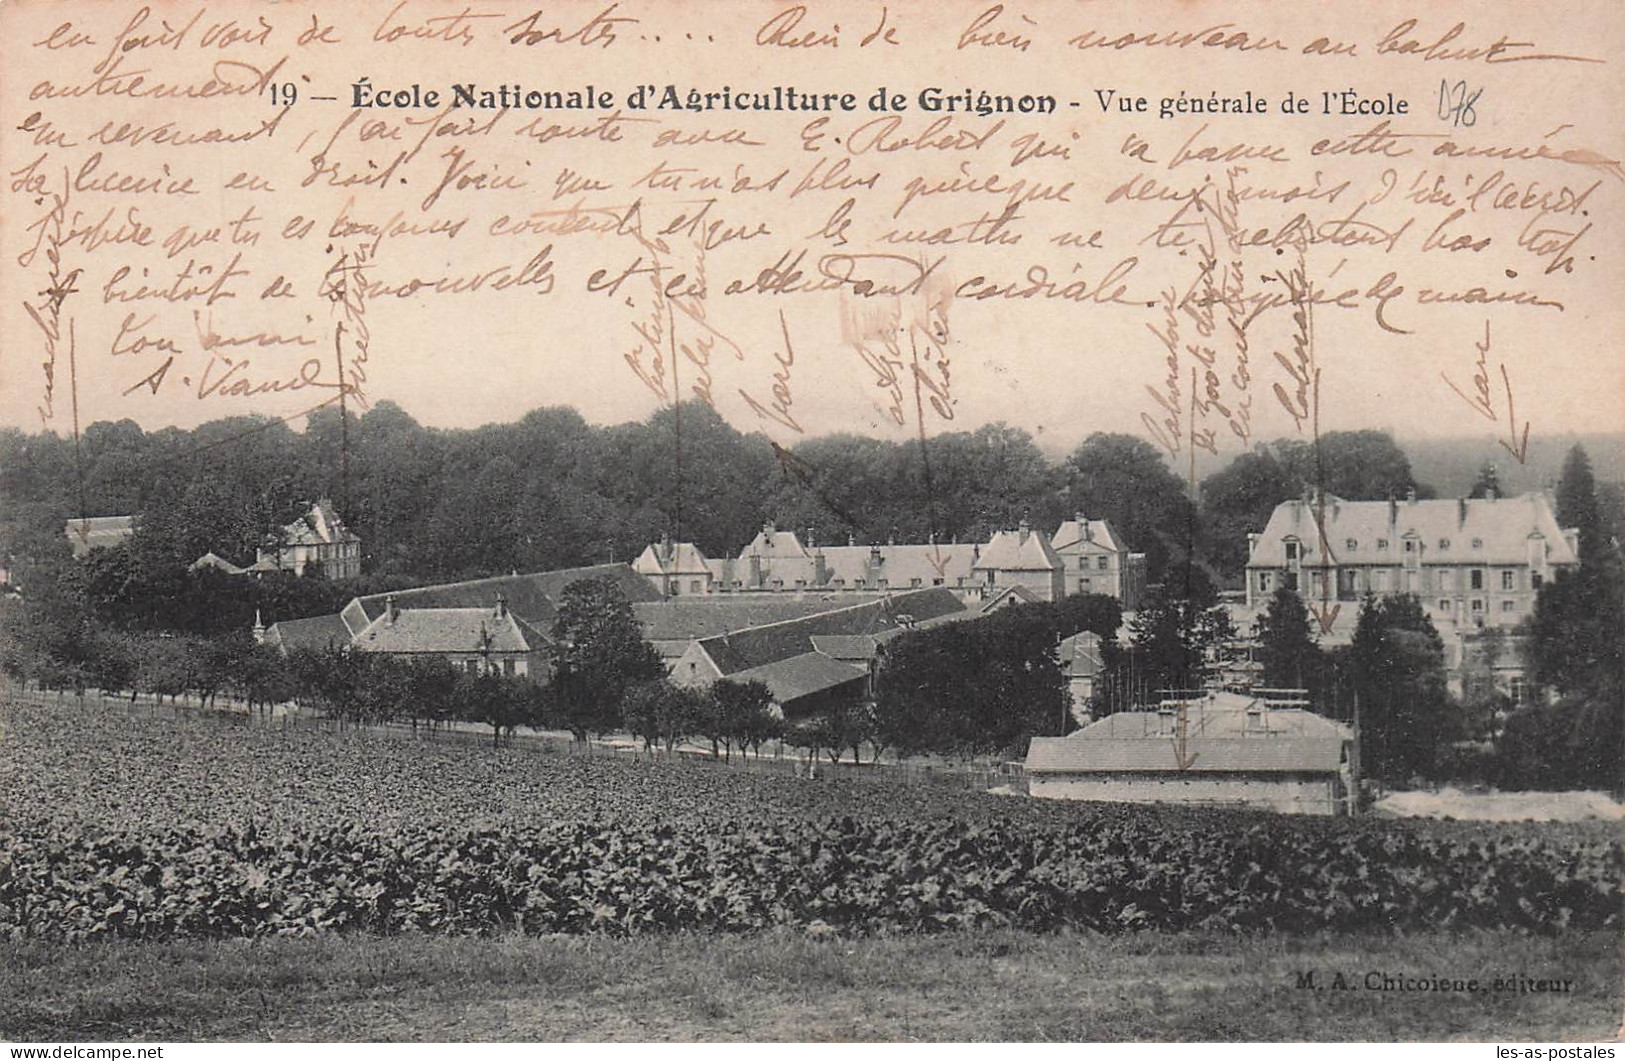 en fait voir de toutes sortes.... Rien de bien nouveau au bahut
autrement
19 — École Nationale d'Agriculture de Grignon - Vue générale de l'École
D78
en revenant, j'ai fait route avec E. Robert qui va passer cette année
sa licence en droit. Voici que tu n'as plus guère que deux mois d'ici l'écrit.
J'espère que tu es toujours contente et que les maths ne te rebutent pas trop.
A bientôt de tes nouvelles et en attendant cordiale poignée de main
Ton ami
A. Viand
machines
direction
bâtiments
de la ferme
parc
château
laboratoire
de zootechnie
en construction
laboratoire
parc
M. A. Chicoiene, éditeur
les-as-postales